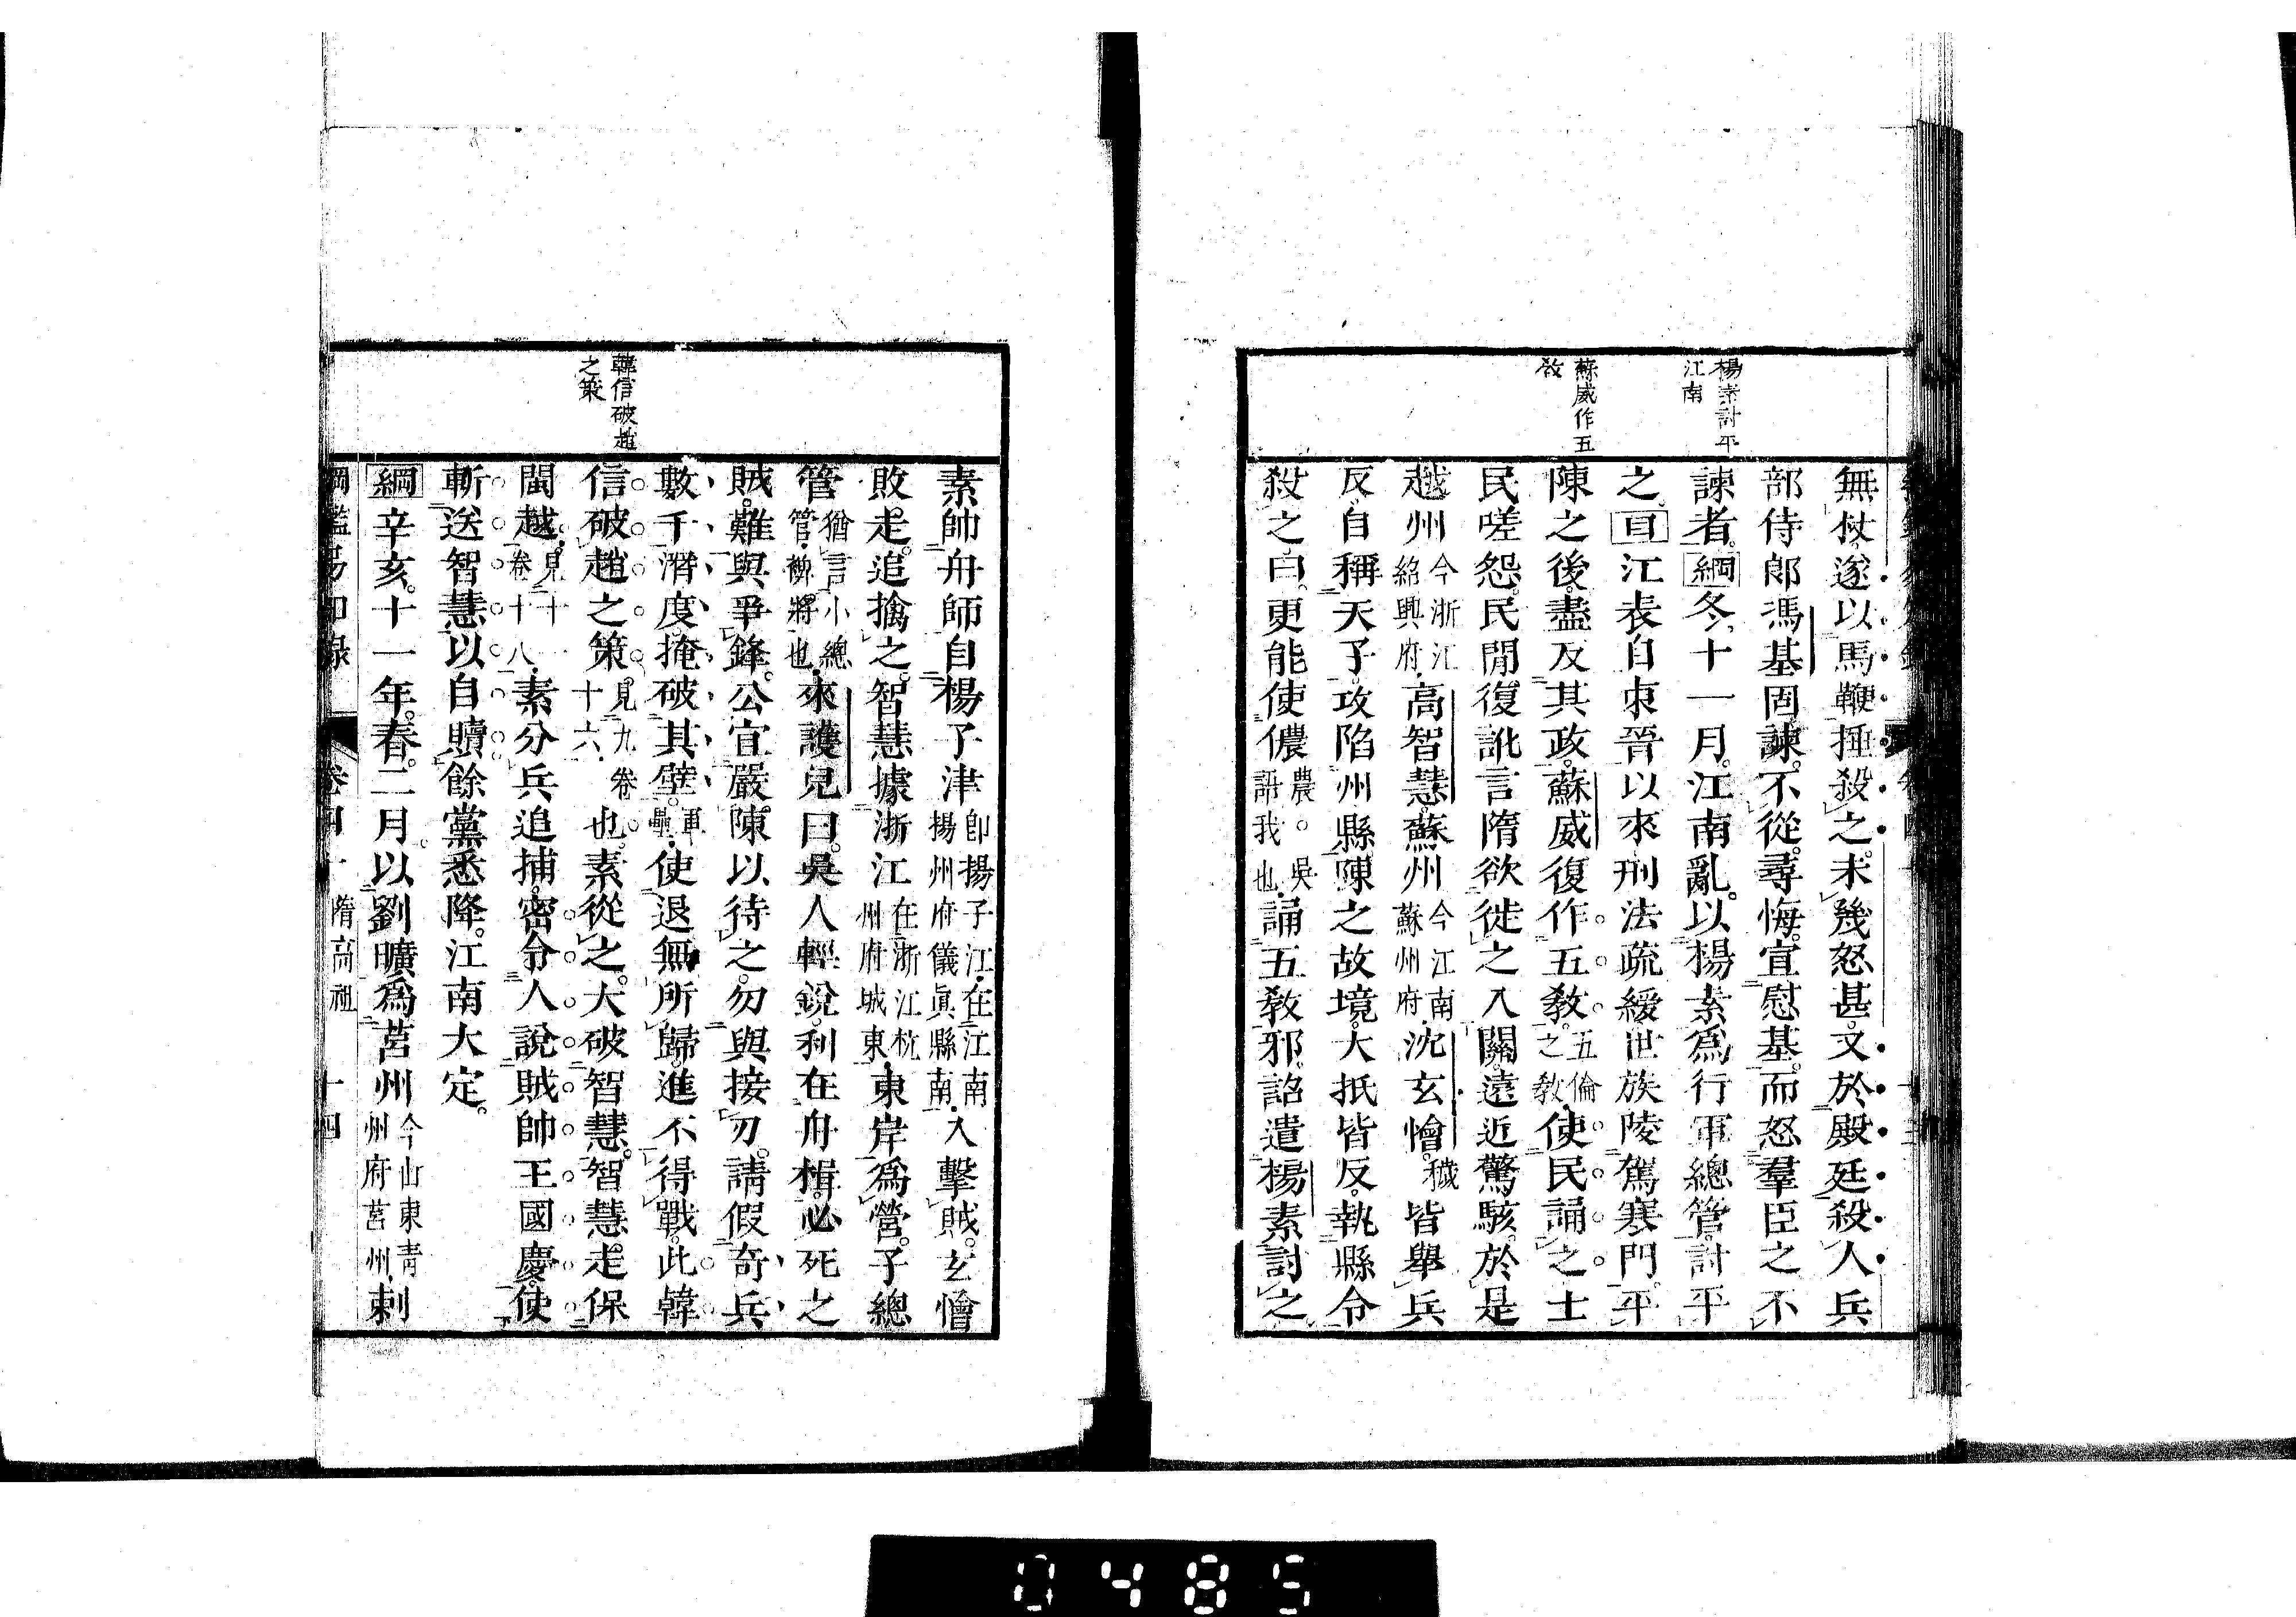 楊素討平
江南
蘇威作五
敎
無杖。遂以馬鞭捶殺之。未幾怒甚。又於殿廷殺人。兵
部侍郎馮基固諫。不從。尋悔。宣慰基。而怒羣臣之不
諫者。綱冬、十一月。江南亂。以楊素爲行軍總管。討平
之。目江表自東晉以來刑法疏緩世族陵駕寒門。平
陳之後。盡反其政。蘇威復作五敎。五倫之敎。使民誦之士
民嗟怨。民閒復訛言隋欲徙之入關。遠近驚駭。於是
越州今浙江紹興府。高智慧。蘇州今江南蘇州府。沈玄懀。穢皆舉兵
反。自稱天子。攻陷州縣。陳之故境。大抵皆反。執縣令
殺之曰。更能使儂農。吳語我也。誦五敎邪。詔遣楊素討之
韓信破趙
之策
素帥舟師自楊子津卽揚子江在江南揚州府儀眞縣南。入擊賊。玄懀
敗走。追擒之。智慧據浙江在浙江杭州府城東。東岸爲營。子總
管猶言小總管。裨將也。來護兒曰。吳人輕銳。利在舟楫。必死之
賊。難與爭鋒。公宜嚴陳以待之。勿與接刃。請假奇兵
數千。潛度。掩破其壁。軍壘。使退無所歸。進不得戰。此韓
信破趙之策見九卷十六。也。素從之。大破智慧。智慧走保
閩越。見十一卷十八。素分兵追捕。密令人說賊帥王國慶。使
斬送智慧以自贖。餘黨悉降。江南大定。
綱辛亥。十一年。春。二月。以劉曠爲莒州今山東靑州府莒州。刺
綱鑑易知錄 卷四十 隋高祖 十四
0485